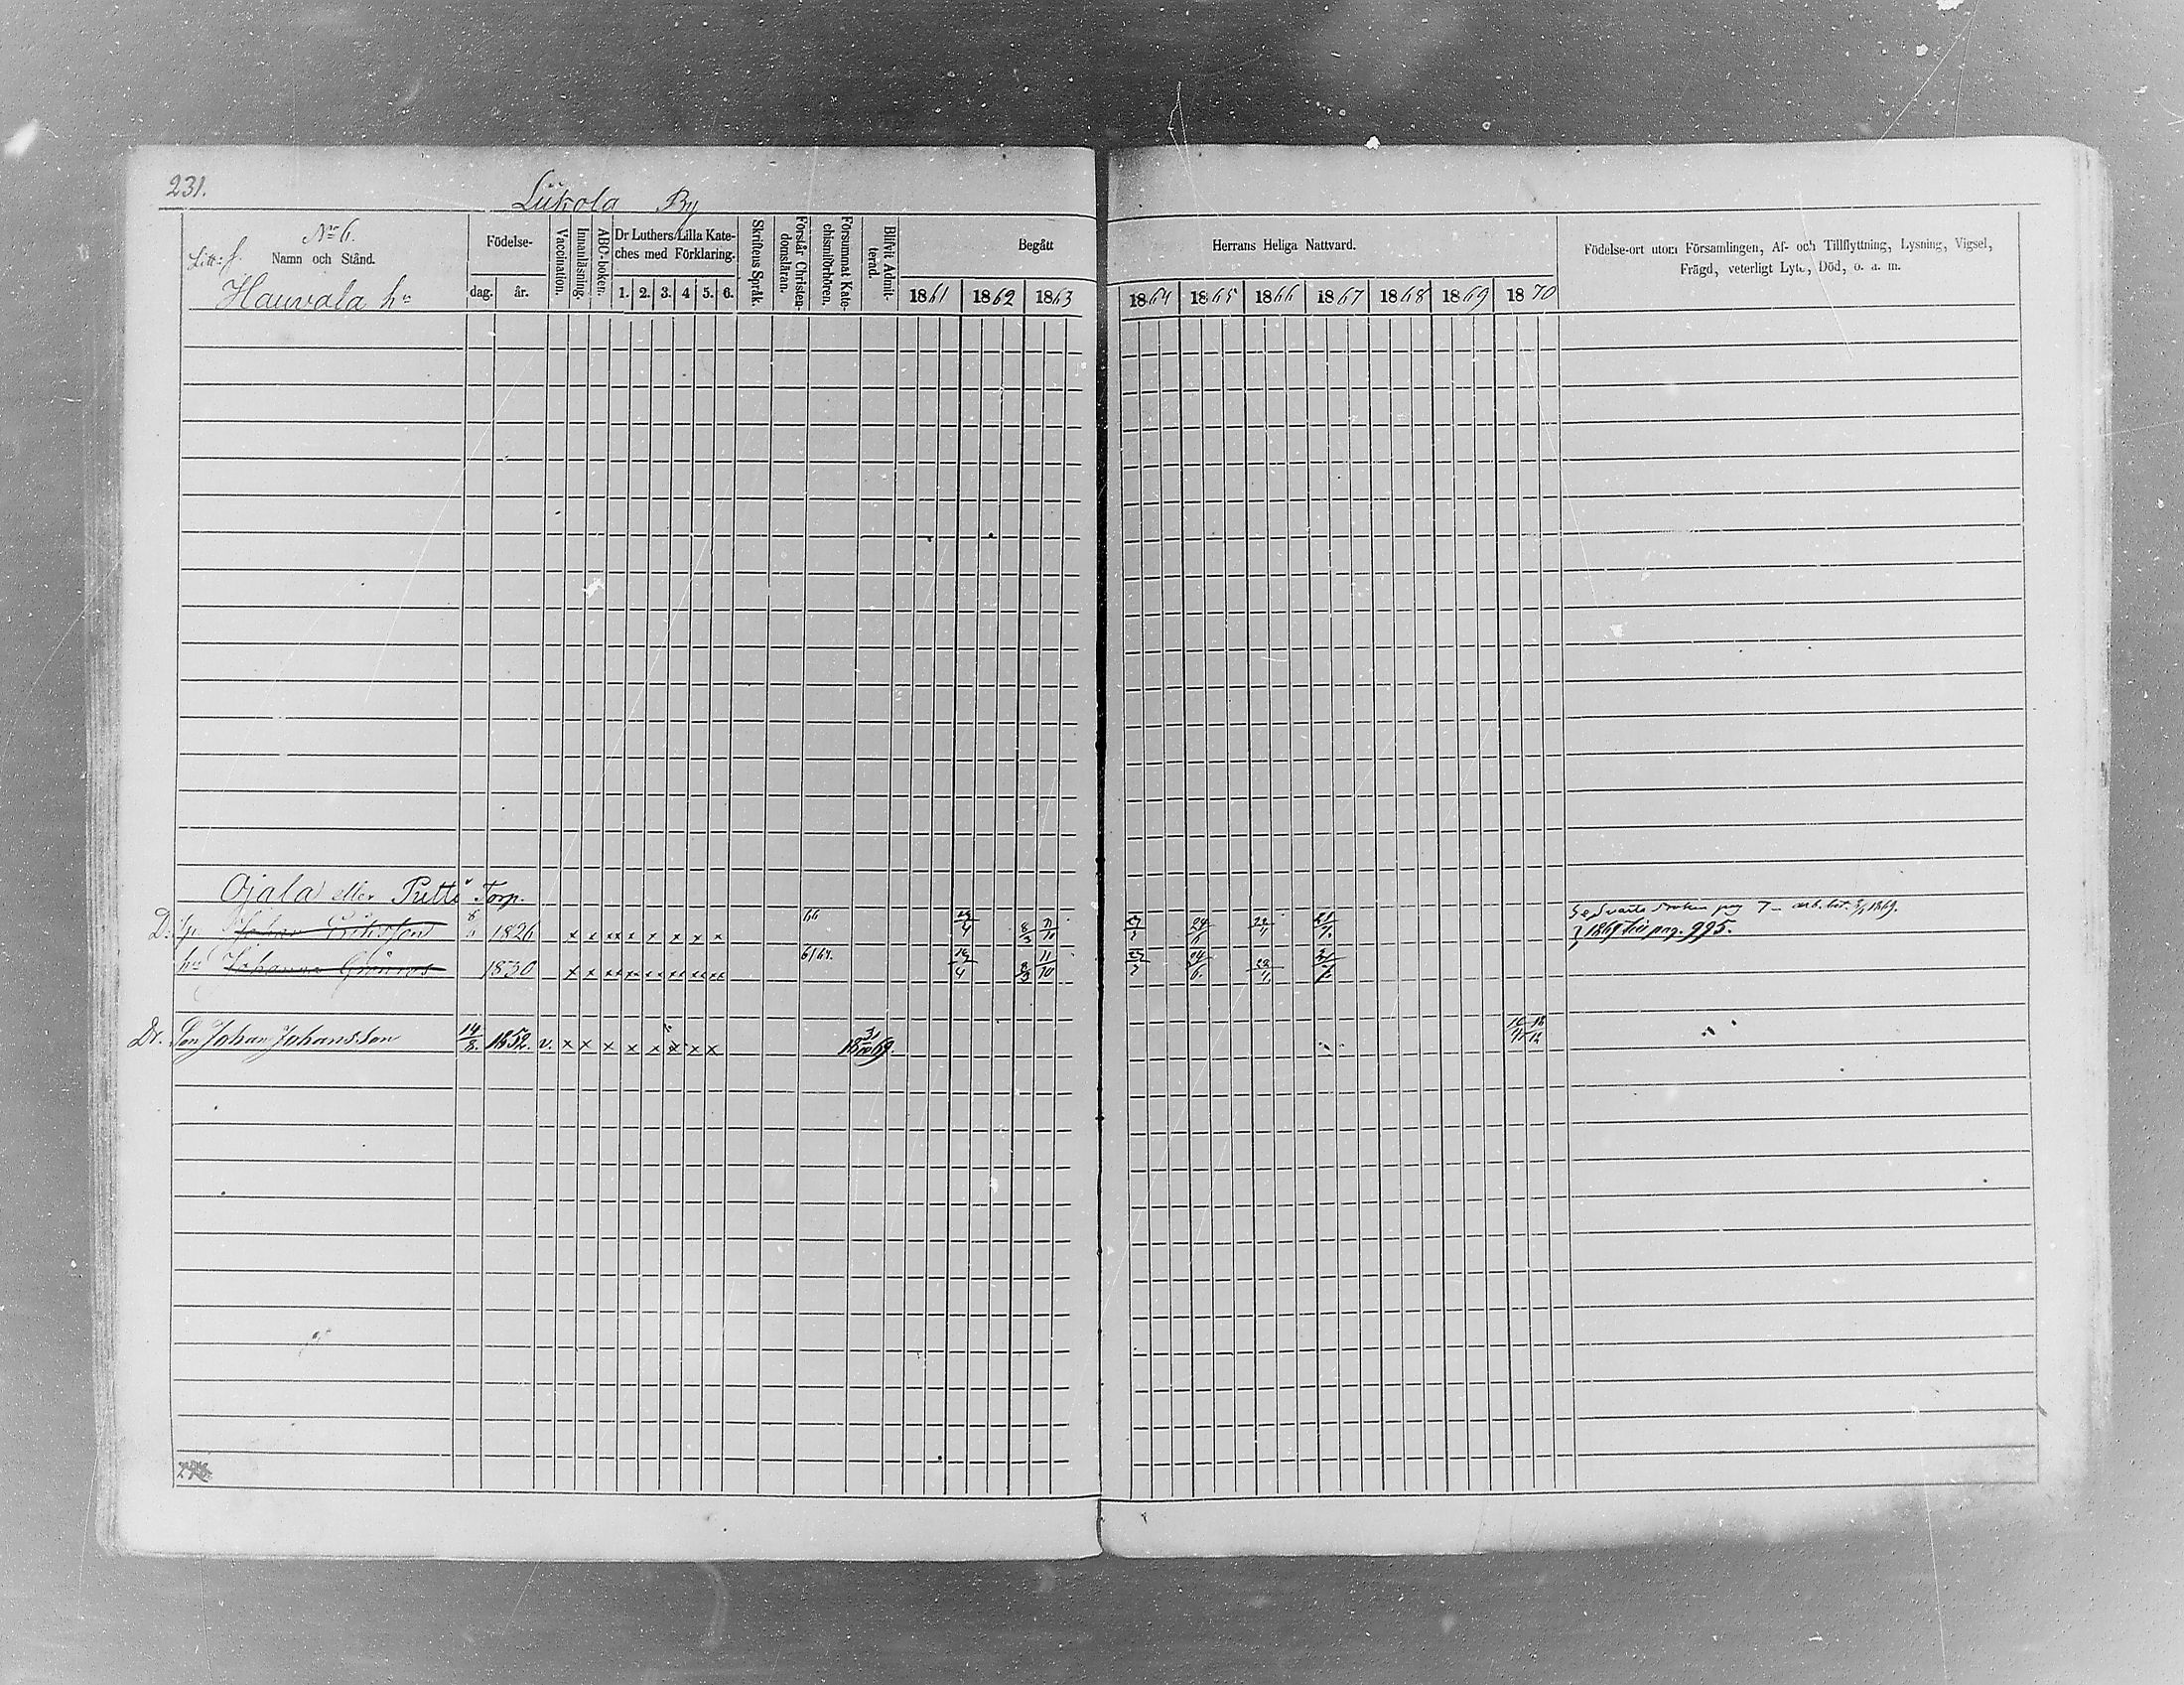 231.
Liikola By
No 6.
Litt: f.
Namn och Stånd.
Hauvala hn
Födelse-
dag. år.
Vaccination.
Innanläsning.
ABC-boken.
Dr Luthers Lilla Kate-
ches med Förklaring.
1. 2. 3. 4 5. 6.
Skriftens Språk.
Förstår Christen-
domsläran.
Försummat Kate-
chismiförhören.
Blifvit Admit-
terad.
Begått
1861 1862 1863
Herrans Heliga Nattvard.
1864 1865 1866 1867 1868 1869 1870
Födelse-ort utom Församlingen, Af- och Tillflyttning, Lysning, Vigsel,
Frägd, veterligt Lyte, Död, o. s. m.
Ojala eller Putti Torp.
D. Johan Eriksson 1826 x x xx x x x x x 66 8/3 11/10 24/6 22/1
1869 pag. 995.
hu Johanna 1830 x x 8/3 11/10 24/6 22/1
Dr. Son Johan Johansson 14/8. 1852. v. x x x x x x x x 18 31/10 69.